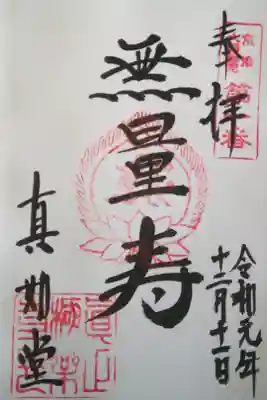 奉拝
令和元年
十二月十一日
無量寿
真如堂